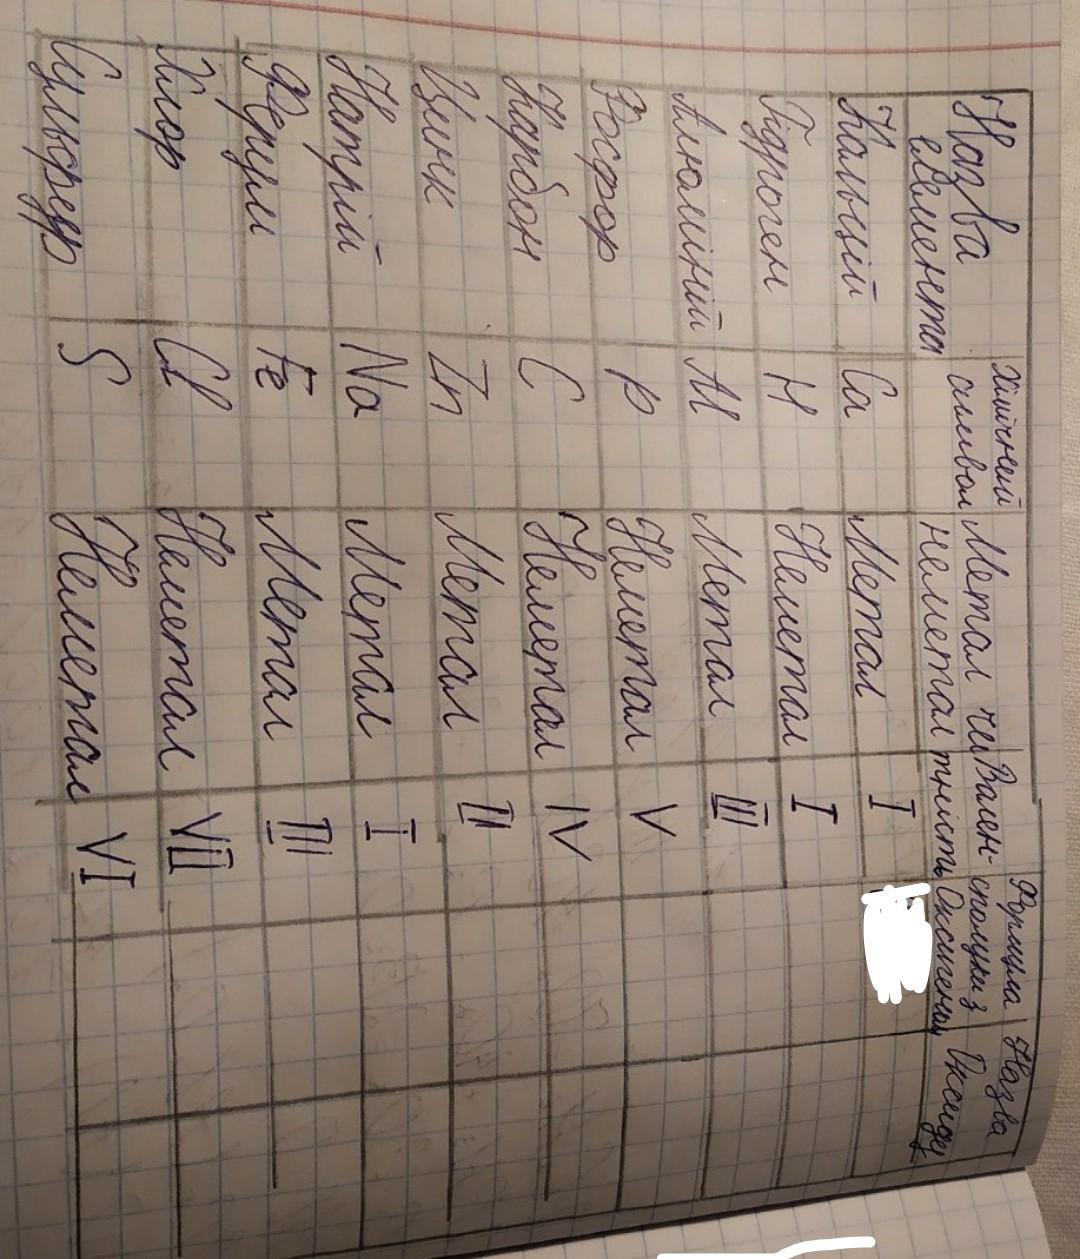 Назва елемента
Хімічний символ
Метал чи неметал
Вален-тність
Формула сполуки з Оксигеном
Назва Оксиду
Кальцій Ca Метал I
Гідроген H Неметал I
Алюміній Al Метал III
Фосфор P Неметал V
Карбон C Неметал IV
Цинк Zn Метал II
Натрій Na Метал I
Ферум Fe Метал III
Хлор Cl Неметал VII
Сульфур S Неметал VI